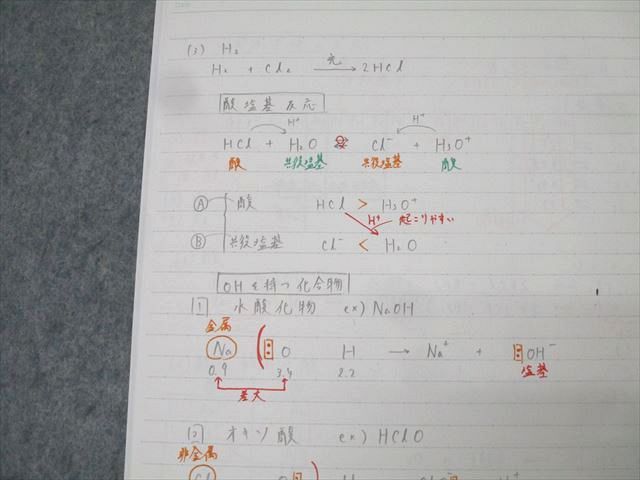 (3) H₂
光
H₂ + Cl₂ → 2HCl
酸塩基反応
H⁺ H⁺
HCl + H₂O ⇄ Cl⁻ + H₃O⁺
酸 共役塩基 共役塩基 酸
Ⓐ 酸 HCl > H₃O⁺
H⁺ 起こりやすい
Ⓑ 共役塩基 Cl⁻ < H₂O
OHを持つ化合物
1 水酸化物 ex) NaOH
金属
Na : O H → Na⁺ + :OH⁻
0.9 3.4 2.2 塩基
差大
2 オキソ酸 ex) HClO
非金属